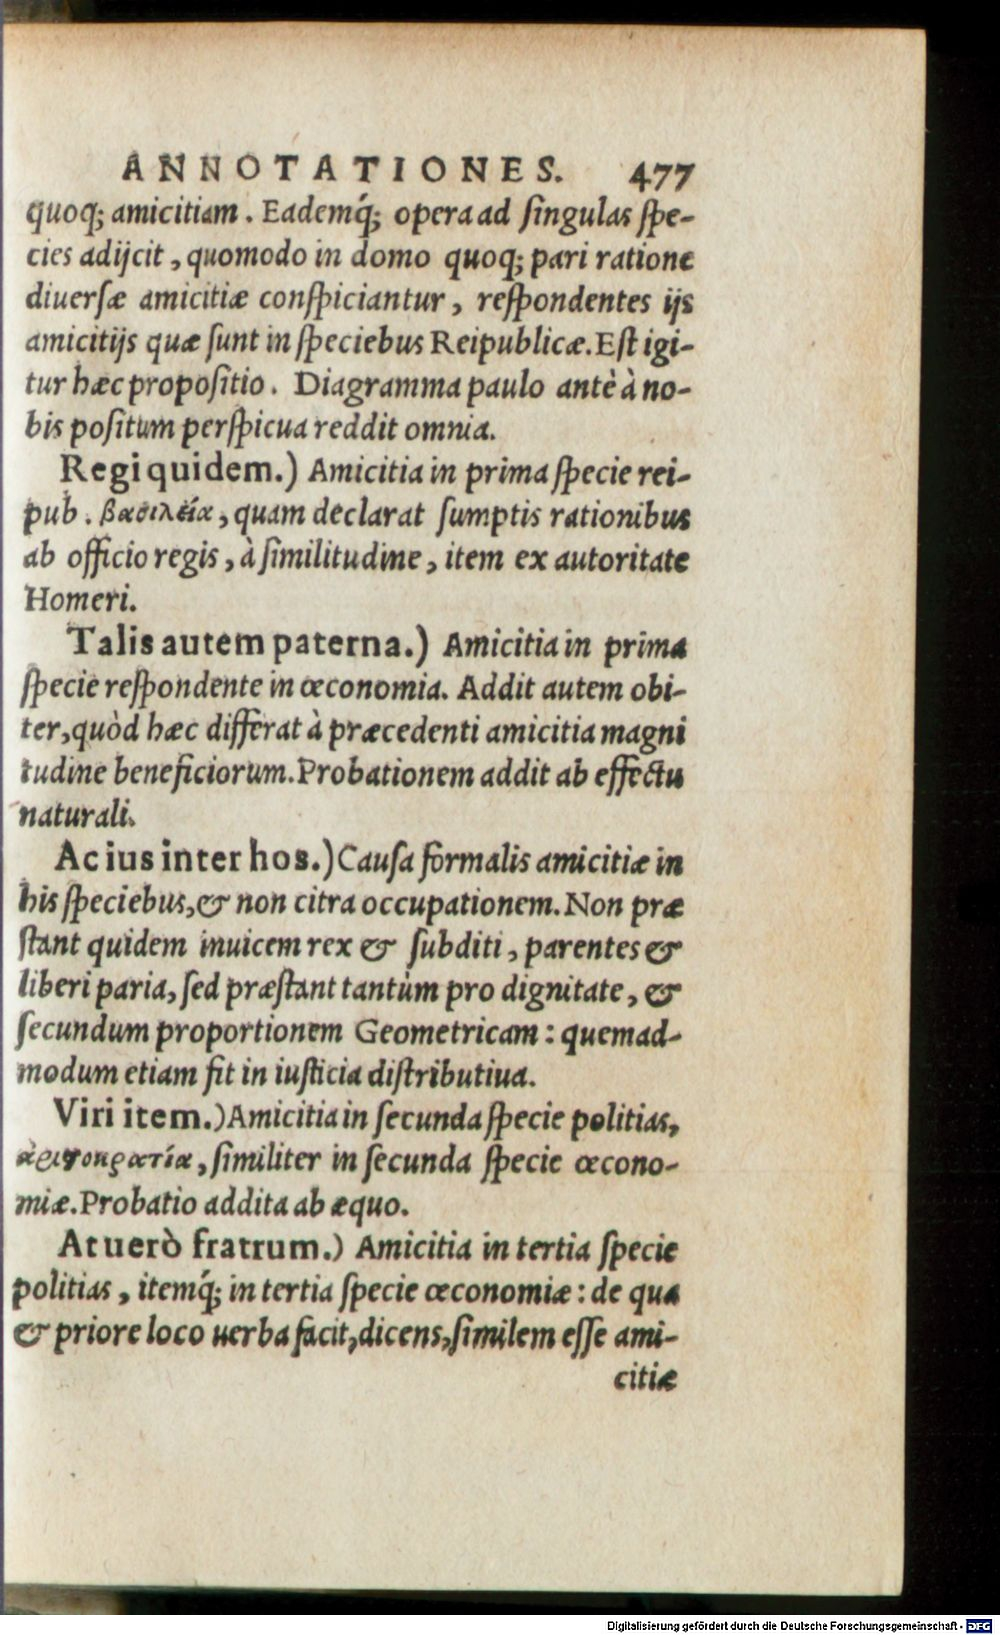 ANNOTATIONES. 477
quoq; amicitiam. Eademq́; opera ad ſingulas ſpe-
cies adijcit, quomodo in domo quoq; pari ratione
diuerſæ amicitiæ conſpiciantur, reſpondentes ijs
amicitijs quæ ſunt in ſpeciebus Reipublicæ. Eſt igi-
tur hæc propoſitio. Diagramma paulo antè à no-
bis poſitum perſpicua reddit omnia.
Regi quidem.) Amicitia in prima ſpecie rei-
pub. βασιλεία, quam declarat ſumptis rationibus
ab officio regis, à ſimilitudine, item ex autoritate
Homeri.
Talis autem paterna.) Amicitia in prima
ſpecie reſpondente in œconomia. Addit autem obi-
ter, quòd hæc differat à præcedenti amicitia magni
tudine beneficiorum. Probationem addit ab effectu
naturali.
Ac ius inter hos.) Cauſa formalis amicitiæ in
his ſpeciebus, & non citra occupationem. Non præ
ſtant quidem inuicem rex & ſubditi, parentes &
liberi paria, ſed præſtant tantùm pro dignitate, &
ſecundum proportionem Geometricam: quemad-
modum etiam fit in iuſticia diſtributiua.
Viri item.) Amicitia in ſecunda ſpecie politias,
ἀριϛοκρατία, ſimiliter in ſecunda ſpecie œcono-
miæ. Probatio addita ab æquo.
At uerò fratrum.) Amicitia in tertia ſpecie
politias, itemq́; in tertia ſpecie œconomiæ: de qua
& priore loco uerba facit, dicens, ſimilem eſſe ami-
citiæ
Digitalisierung gefördert durch die Deutsche Forschungsgemeinschaft - DFG